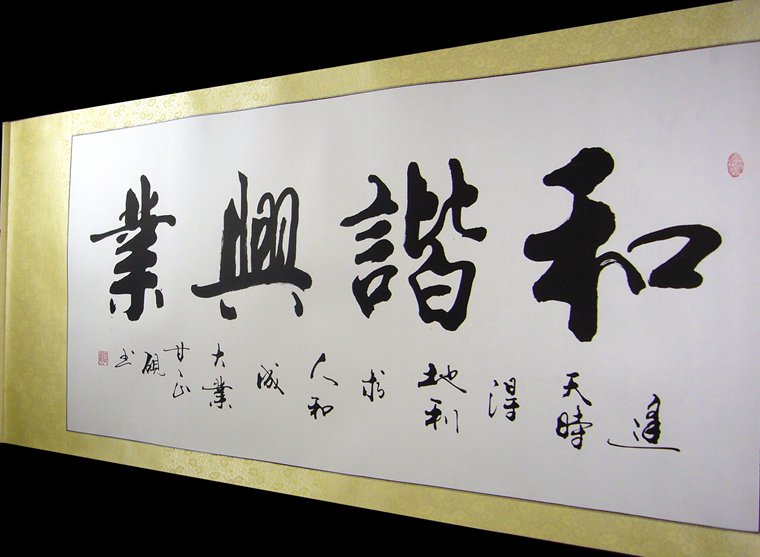 和諧興業
逢天時得地利求人和成大業甘硯书